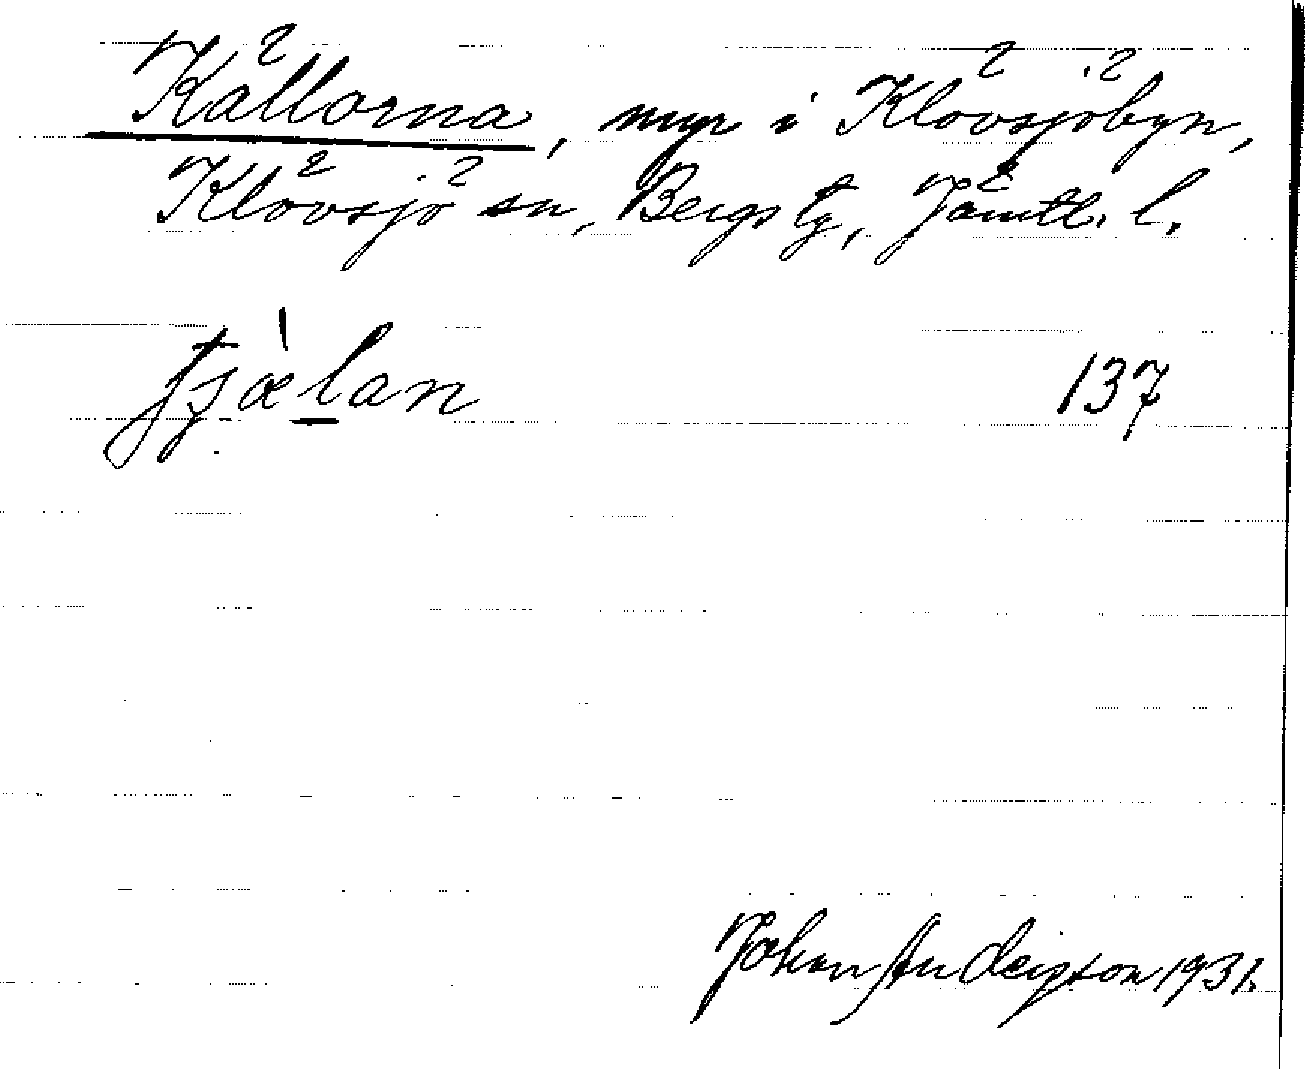 Källorna, myr i Klövsjöbyn,
Klövsjö sn, Bergs tg, Jämtl. l.
tjæ̀lan
137
Johan Anderson 1931.